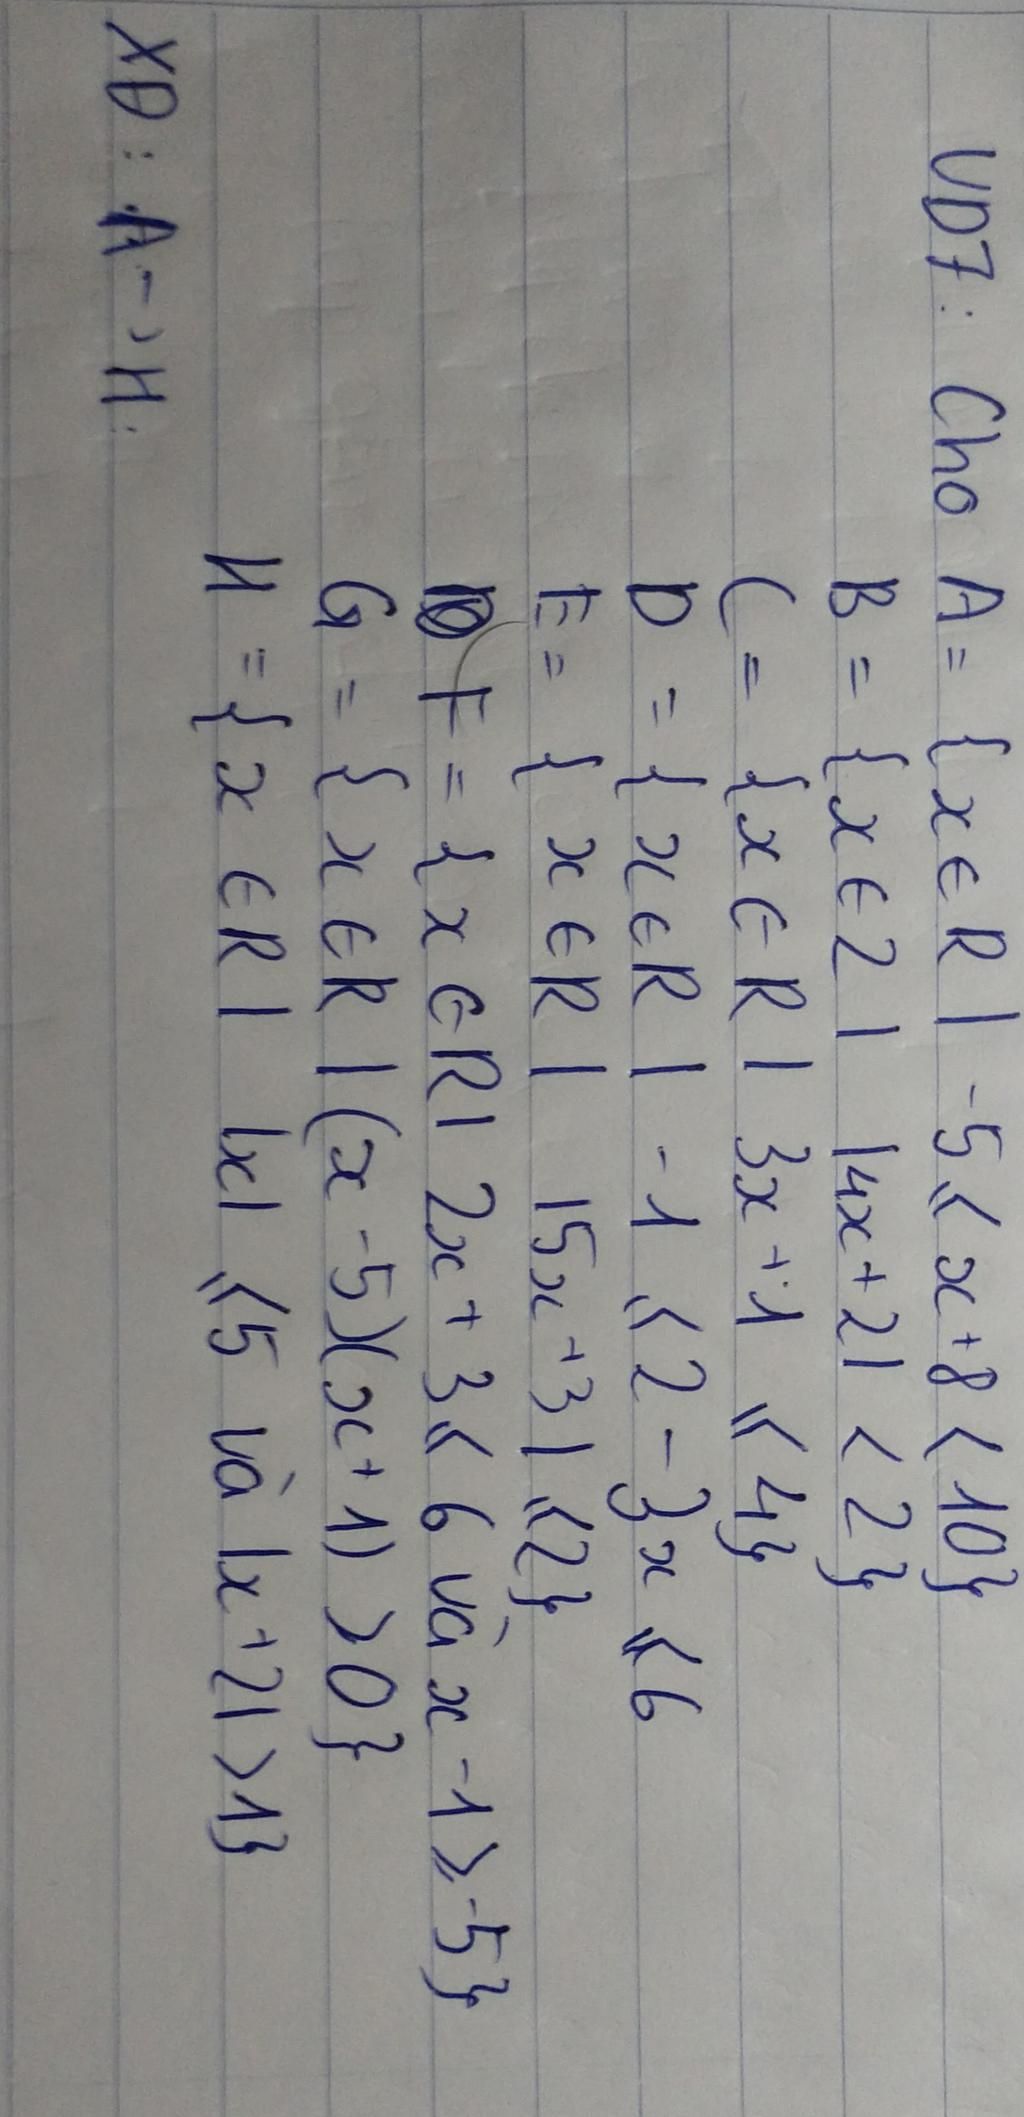 VD7: Cho A = {x ∈ R | -5 ⩽ x + 8 < 10}
B = {x ∈ Z | |4x + 2| < 2}
C = {x ∈ R | 3x + 1 ⩽ 4}
D = {x ∈ R | -1 ⩽ 2 - 3x ⩽ 6
E = {x ∈ R | |5x + 3| ⩽ 2}
F = {x ∈ R | 2x + 3 ⩽ 6 và x - 1 ⩾ -5}
G = {x ∈ R | (x - 5)(x + 1) > 0}
H = {x ∈ R | |x| ⩽ 5 và |x + 2| > 1}
XĐ: A -> H: